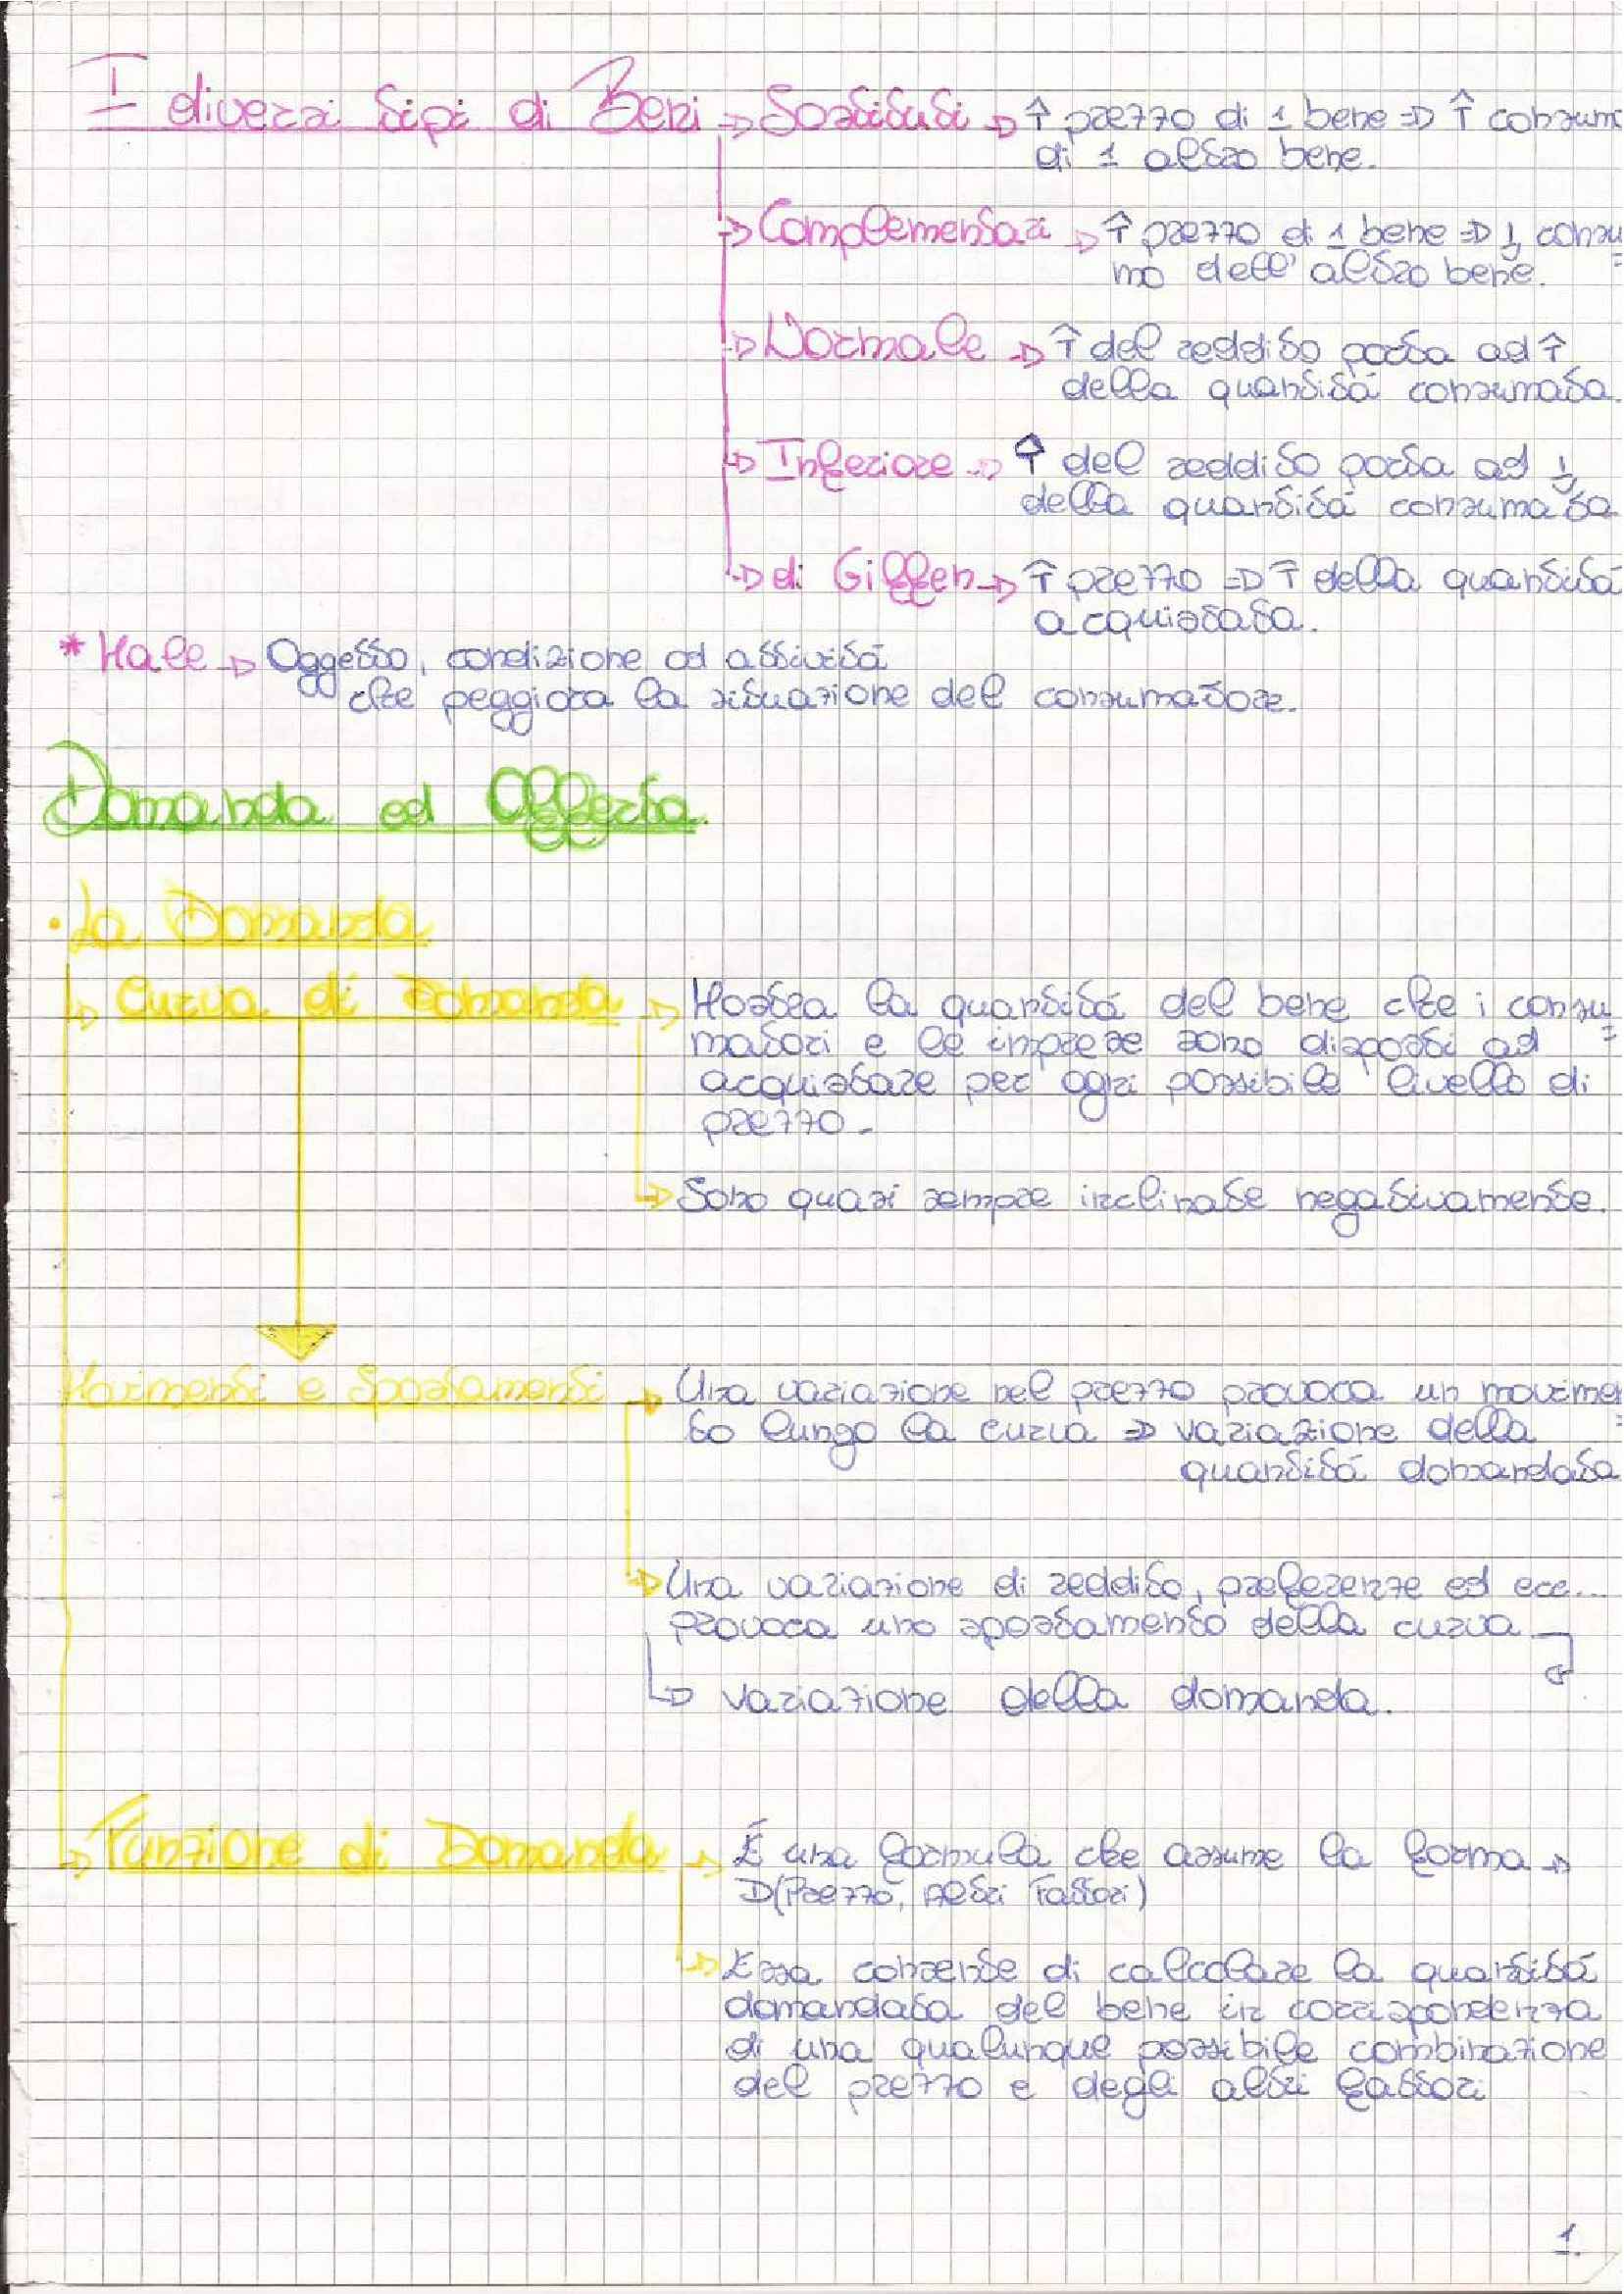 I diversi tipi di Beni → Sostituti → ↑ prezzo di 1 bene ⇒ ↑ consumo
di 1 altro bene.
→ Complementari → ↑ prezzo di 1 bene ⇒ ↓ consu=
mo dell'altro bene.
→ Normale → ↑ del reddito porta ad ↑
della quantitá consumata.
→ Inferiore → ↑ del reddito porta ad ↓
della quantitá consumata
→ di Giffen → ↑ prezzo ⇒ ↑ della quantitá
acquistata.
* Male → Oggetto, condizione od attivitá
che peggiora la situazione del consumatore.
Domanda ed Offerta.
• La Domanda
→ Curva di domanda → Mostra la quantitá del bene che i consu=
matori e le imprese sono disposti ad
acquistare per ogni possibile livello di
prezzo.
→ Sono quasi sempre inclinate negativamente.
Movimenti e Spostamenti → Una variazione nel prezzo provoca un movimen=
to lungo la curva ⇒ variazione della
quantitá domandata
→ Una variazione di reddito, preferenze ed ecc...
provoca uno spostamento della curva
→ variazione della domanda.
→ Funzione di Domanda → É una formula che assume la forma →
D(Prezzo, Altri Fattori)
→ Essa consente di calcolare la quantitá
domandata del bene in corrispondenza
di una qualunque possibile combinazione
del prezzo e degli altri fattori
1.